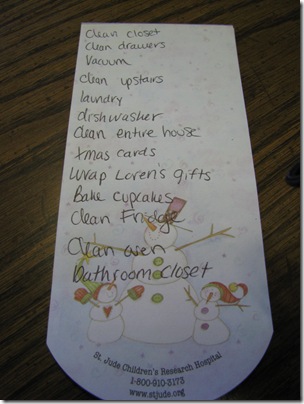 Clean closet
Clean drawers
Vacuum
Clean upstairs
laundry
dishwasher
Clean entire house
Xmas cards
Wrap Loren's gifts
Bake cupcakes
Clean Fridge
Clean oven
bathroom closet
St. Jude Children's Research Hospital
1-800-910-3173
www.stjude.org